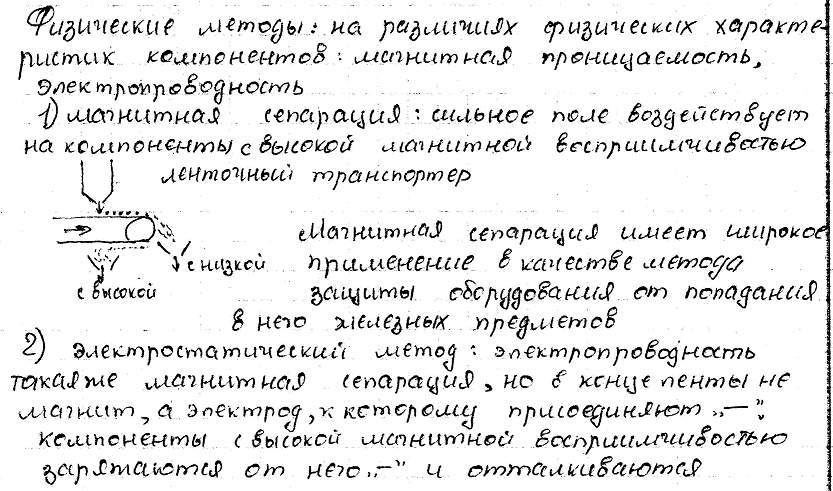 Физические методы: на различиях физических характе-
ристик компонентов: магнитная проницаемость,
электропроводность
1) магнитная сепарация: сильное поле воздействует
на компоненты с высокой магнитной восприимчивостью
ленточный транспортер
Магнитная сепарация имеет широкое
с низкой применение в качестве метода
с высокой защиты оборудования от попадания
в него железных предметов
2) электростатический метод: электропроводность
такая же магнитная сепарация, но в конце ленты не
магнит, а электрод, к которому присоединяют „—“.
компоненты с высокой магнитной восприимчивостью
заряжаются от него „—“ и отталкиваются